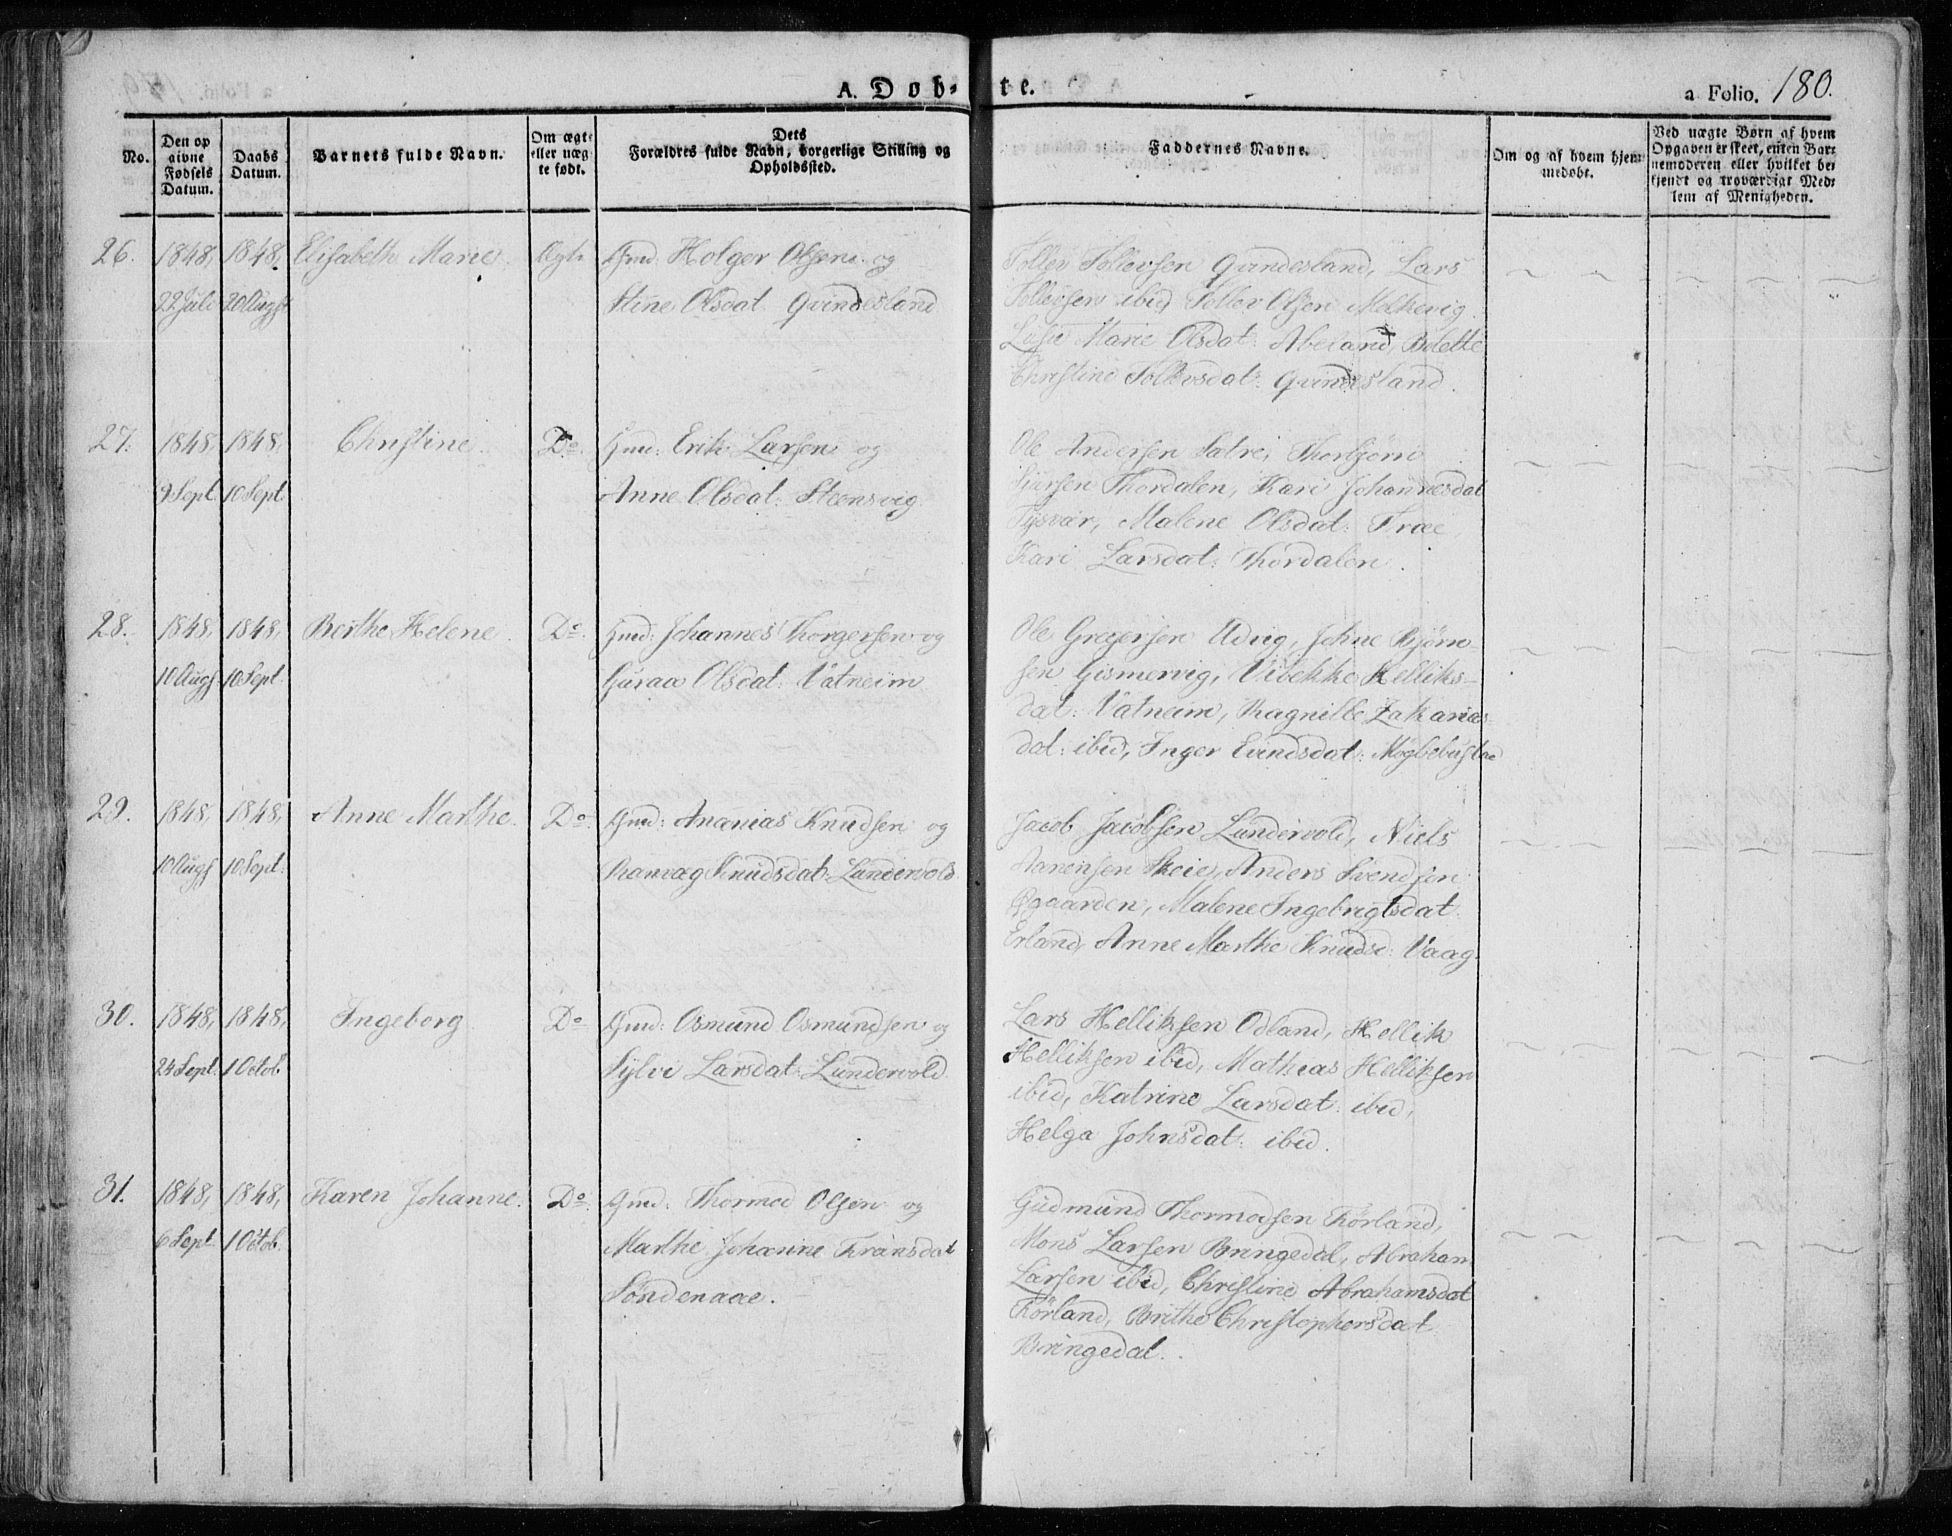 A. Döb-te.
a Folio. 180.
No.
Den op
givne
Fødsels
Datum.
Daabs
Datum.
Barnets fulde Navn.
Om ægte
eller uæg
te født.
Dets
Forældres fulde Navn, borgerlige Stilling og
Opholdssted.
Faddernes Navne.
Om og af hvem hjem
medøbt.
Ved uægte Børn af hvem
Opgaven er skeet, enten Bar-
nemoderen eller hvilket be-
kjendt og troværdigt Med-
lem af Menigheden.
26. 1848, 1848, Elisabeth Marie. Ægte Gmd. Holger Olsen og
22 Juli 20 Augst Stine Olsdat. Qvindesland
Tollev Tollevsen Qvindesland, Lars
Tollevsen ibid, Tollev Olsen Melkevig.
Marie Olsdat: Abeland, Bolette
Christine Tollevsdat: Qvindesland.
27. 1848, 1848, Christine. Do. Gmd: Erik Larsen og
9 Sept. 10 Sept. Anne Olsdat: Steensvig
Ole Andersen Sætre, Thorbjørn
Sjursen Thordalen, Kari Johannesdat
Tysvær, Malene Olsdat: Træe,
Kari Larsdat: Thordalen.
28. 1848, 1848, Berthe Helene. Do. Gmd: Johannes Thorgersen og
10 Augs 10 Sept. Guraa Olsdat: Vatneim
Ole Gregersen Udvig, Johne Bjørn
sen Gismervig, Vibekke Helliks-
dat: Vatneim, Ragnille Zakarias
dat: ibid, Inger Evindsdat:
29. 1848, 1848, Anne Marthe. Do. Gmd: Ananias Knudsen og
10 Augs 10 Sept. Ranvæg Knudsdat: Lundervold
Jacob Jacobsen Lundervold, Niels
Aanensen Skeie, Anders Svendsen
Øgaarden, Malene Ingebrigtsdat.
Erland, Anne Marthe Knudsd: Vaag.
30. 1848, 1848, Ingeborg. Do Gmd: Osmund Osmundsen og
24 Sept. 1 Octob. Sylvi Larsdat: Lundervold
Lars Helliksen Odland, Hellik
Helliksen ibid, Mathias Helliksen
ibid, Katrine Larsdat: ibid,
Helga Johnsdat: ibid.
31. 1848, 1848, Karen Johanne. Do. Gmd: Thormod Olsen og
6 Sept. 1 Octob. Marthe Johanne Fransdat
Søndenaae.
Gudmund Thormodsen Førland,
Mons Larsen Bringedal, Abraham
Larsen ibid, Christine Abrahamsdat
Førland, Brithe Christophersdat
Bringedal.